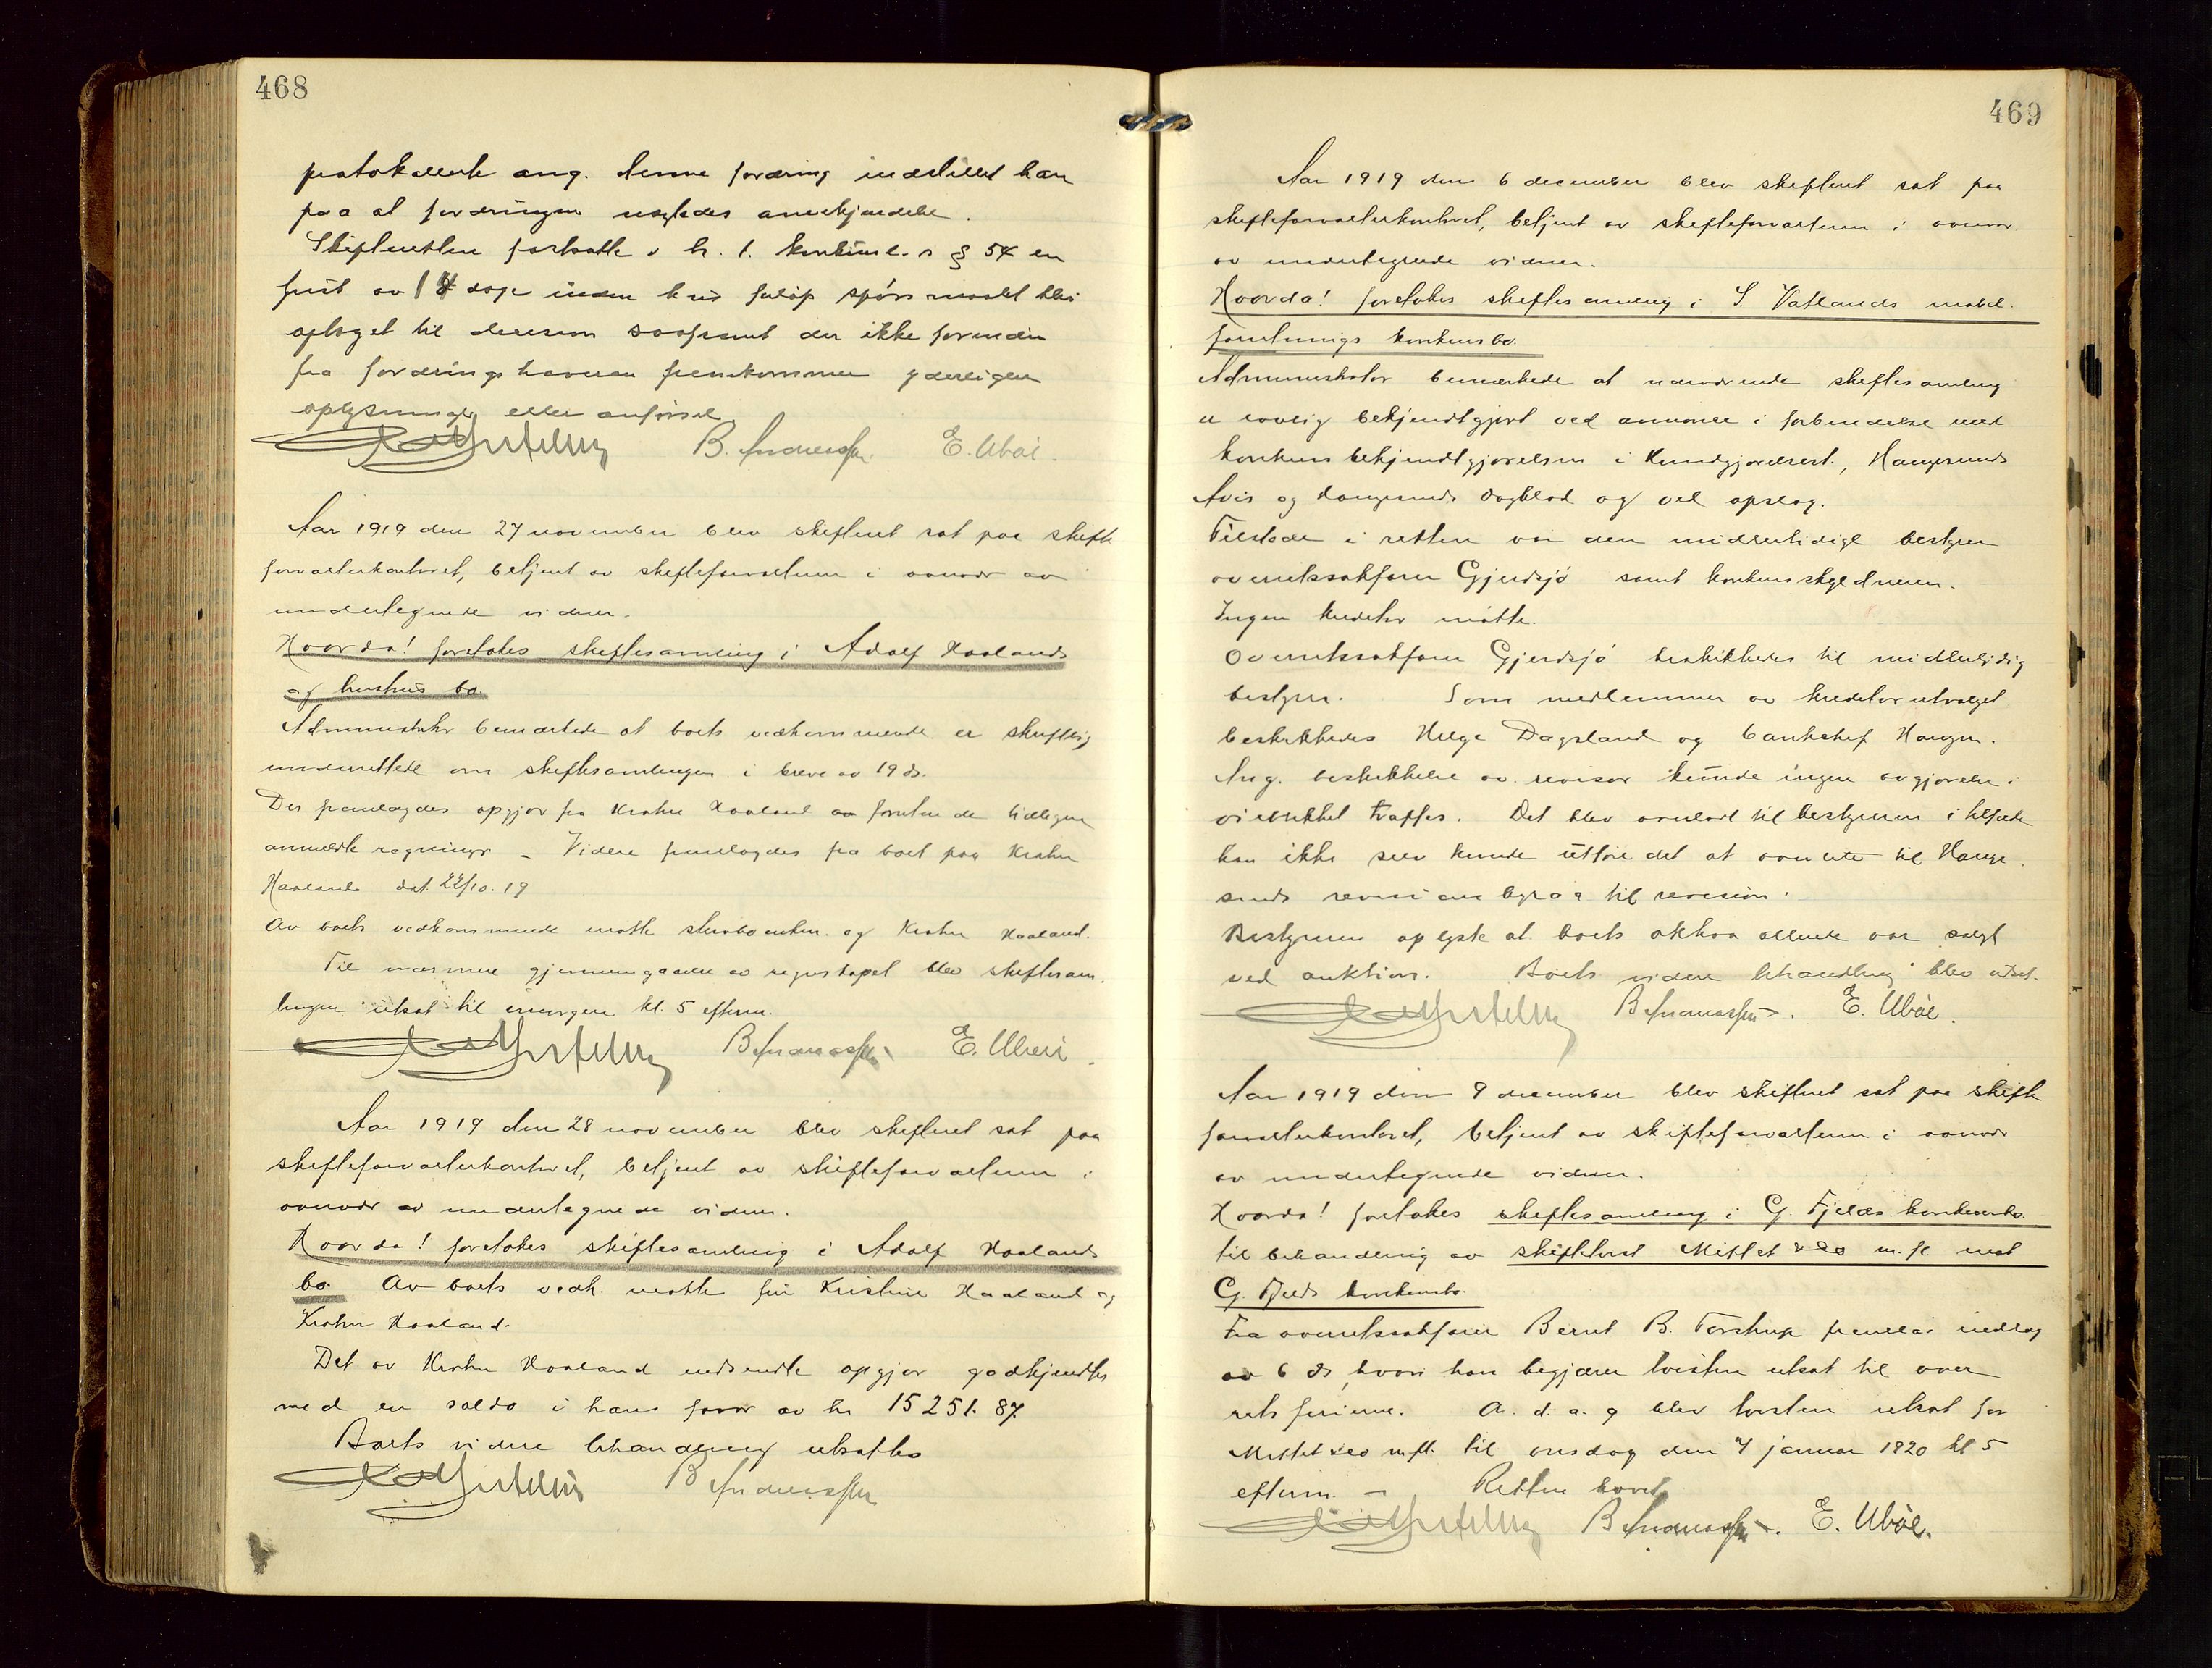 468
protokollerte ang. denne fordring indstillet han
paa at fordringen negtedes anerkjendelse.
Skifteretten fortsatte i h. t. konkurslovens § 54 en
frist av 14 dage inden hvis forløp spørsmaalet blir
optaget til decision saafremt der ikke forinden
fra fordringshaveren fremkommer yderligere
oplysninger eller anførsel
B. Andreassen. E. Ubøe.
Aar 1919 den 27 november blev skifteret sat paa skifte
forvalterkontoret, betjent av skifteforvalteren i overvær av
undertegnede vidner.
Hvorda! foretokes skiftesamling i Adolf Haalands
og hustrus bo.
Administrator bemærkede at boets vedkommende er skriftlig
underrettede om skiftesamlingen i breve av 19 ds.
Der fremlagdes opgjør fra Krohn Haaland foruten de tidligere
anmeldte regninger – Videre fremlagdes fra boet paa Krohn
Haaland dat. 22/10. 19
Av boets vedkommende møtte og Krohn Haaland.
Til nærmere gjennemgaaelse av regnskapet blev skiftesam-
lingen utsat til imorgen kl. 5 efterm.
B Andreassen E. Ubøe
Aar 1919 den 28 november blev skifteret sat paa
skifteforvalterkontoret, betjent av skifteforvalteren i
overvær av undertegnede vidner.
Hvorda! foretokes skiftesamling i Adolf Haalands
bo. Av boets vedk. møtte fru Kristine Haaland og
Krohn Haaland.
Det av Krohn Haaland indsendte opgjør godkjendtes
med en saldo i hans favør av kr 15251.87.
Boets videre behandling utsattes
B Andreassen
469
Aar 1919 den 6 december blev skifteret sat paa
skifteforvalterkontoret, betjent av skifteforvalteren i overvær
av undertegnede vidner.
Hvorda! foretokes skiftesamling i S. Vatlands møbel-
forretnings konkursbo.
Administrator bemærkede at nærværende skiftesamling
er lovlig bekjendtgjort ved annonce i forbindelse med
konkursbekjendtgjørelsen i Kundgjørelsest., Haugesunds
Avis og Haugesunds dagblad og ved opslag.
Tilstede i retten var den midlertidige bestyrer
overretssakfører Gjerdsjø samt konkursskyldneren.
Ingen kreditor møtte.
Overretssakfører Gjerdsjø beskikkedes til midlertidig
bestyrer. Som medlemmer av kreditorutvalget
beskikkedes Helge Dagsland og bankchef Haugen.
Ang. beskikkelse av revisor kunde ingen avgjørelse i
øieblikket træffes. Det blev overladt til bestyreren i tilfælde
han ikke selv kunde utføre det at overlate til Hauge-
sunds revisionsbyraa til revision.
Bestyreren oplyste at boets aktiva allerede var solgt
ved auktion. Boets videre behandling blev utsat.
B Andreassen. E. Ubøe.
Aar 1919 den 9 december blev skifteret sat paa skifte
forvalterkontoret, betjent av skifteforvalteren i overvær
av undertegnede vidner.
Hvorda! foretokes skiftesamling i G. Fjelds konkursbo.
til behandling av skiftetvist Mittet & Co m. fl. mot
G. Fjelds konkursbo.
Fra overretssakfører Bernt B. Torstrup fremlaa indlæg
av 6 ds, hvori han begjærer tvisten utsat til over
retsferierne. A. d. a. g blev tvisten utsat for
Mittet & Co m.fl. til onsdag den 7 januar 1920 kl 5
efterm. – Retten hævet
B Andreassen. E. Ubøe.